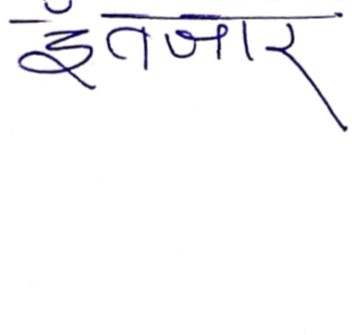 इँतजार